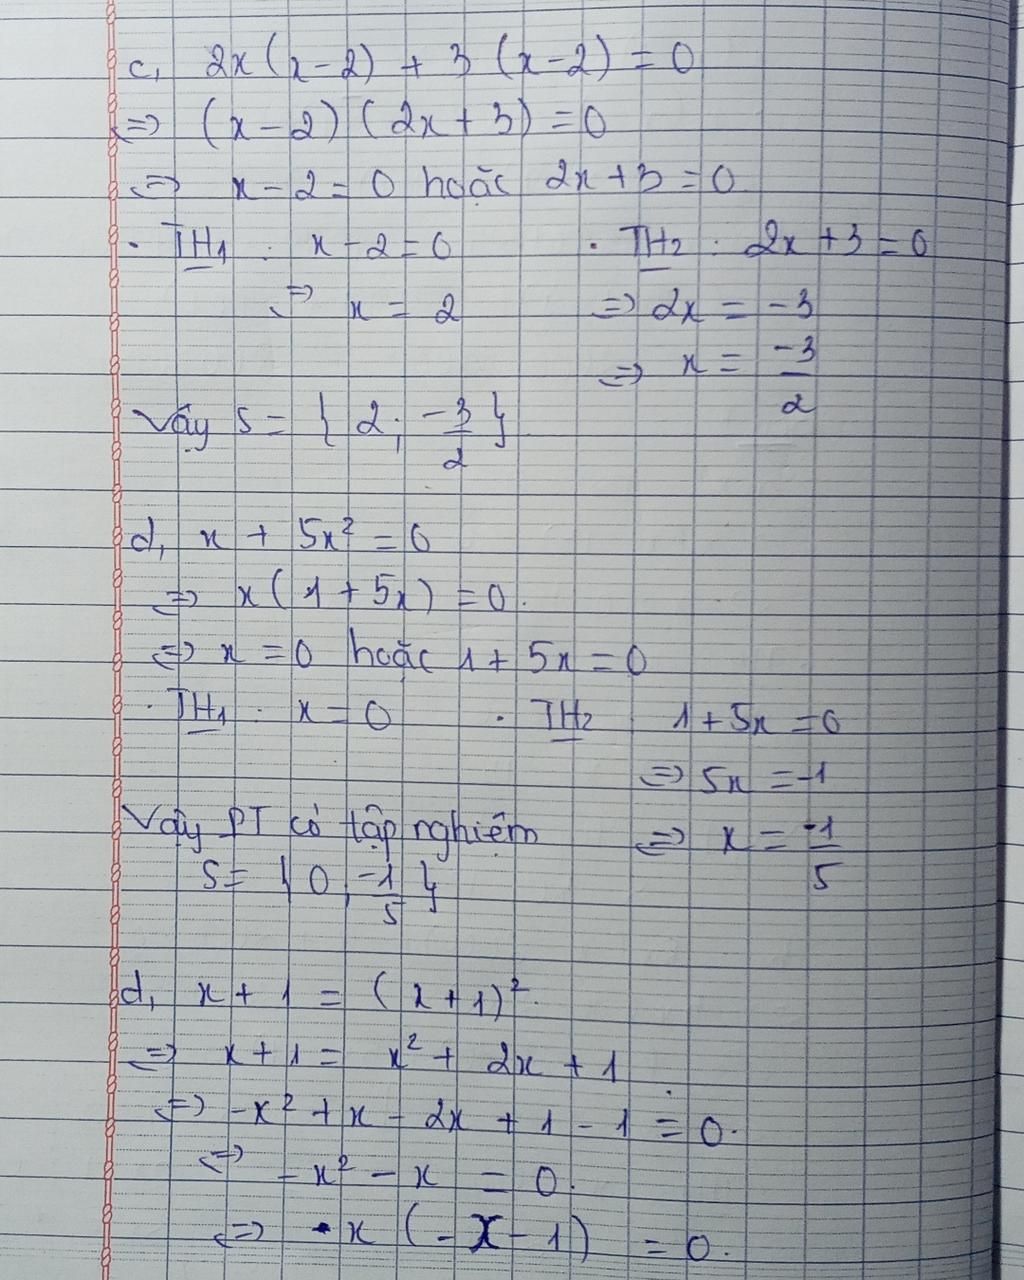 c, 2x(x-2) + 3 (x-2) = 0
⇔ (x-2) (2x+3) = 0
⇔ x-2 = 0 hoặc 2x+3 = 0
· TH1 : x-2=0 · TH2 : 2x+3=0
⇔ x = 2 ⇔ 2x = -3
⇔ x = -3/2
Vậy S = { 2; -3/2 }
d, x + 5x² = 0
⇔ x(1+5x) = 0.
⇔ x = 0 hoặc 1+ 5x = 0
· TH1 : x = 0 · TH2 1+5x = 0
⇔ 5x = -1
Vậy PT có tập nghiệm ⇔ x = -1/5
S = { 0, -1/5 }
d, x + 1 = (x+1)².
⇔ x+1 = x² + 2x + 1
⇔ -x² + x - 2x + 1 - 1 = 0.
⇔ -x² - x = 0.
⇔ x (-x-1) = 0.